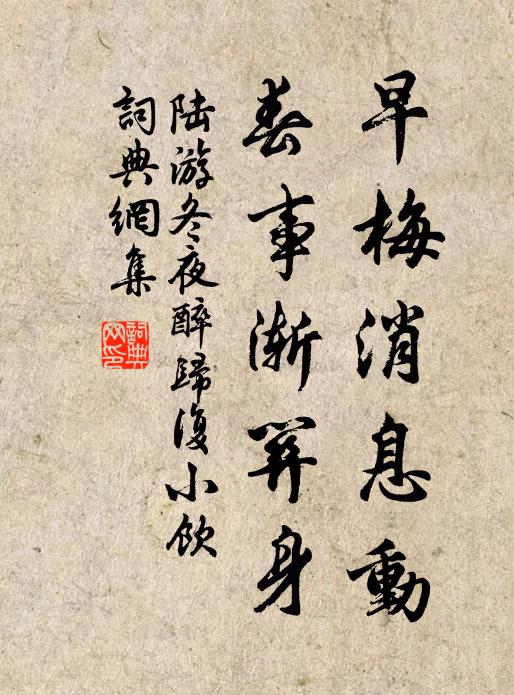 早梅消息動
春事漸關身
陸游冬夜醉歸復小飲
詞典網集
詞典
网印